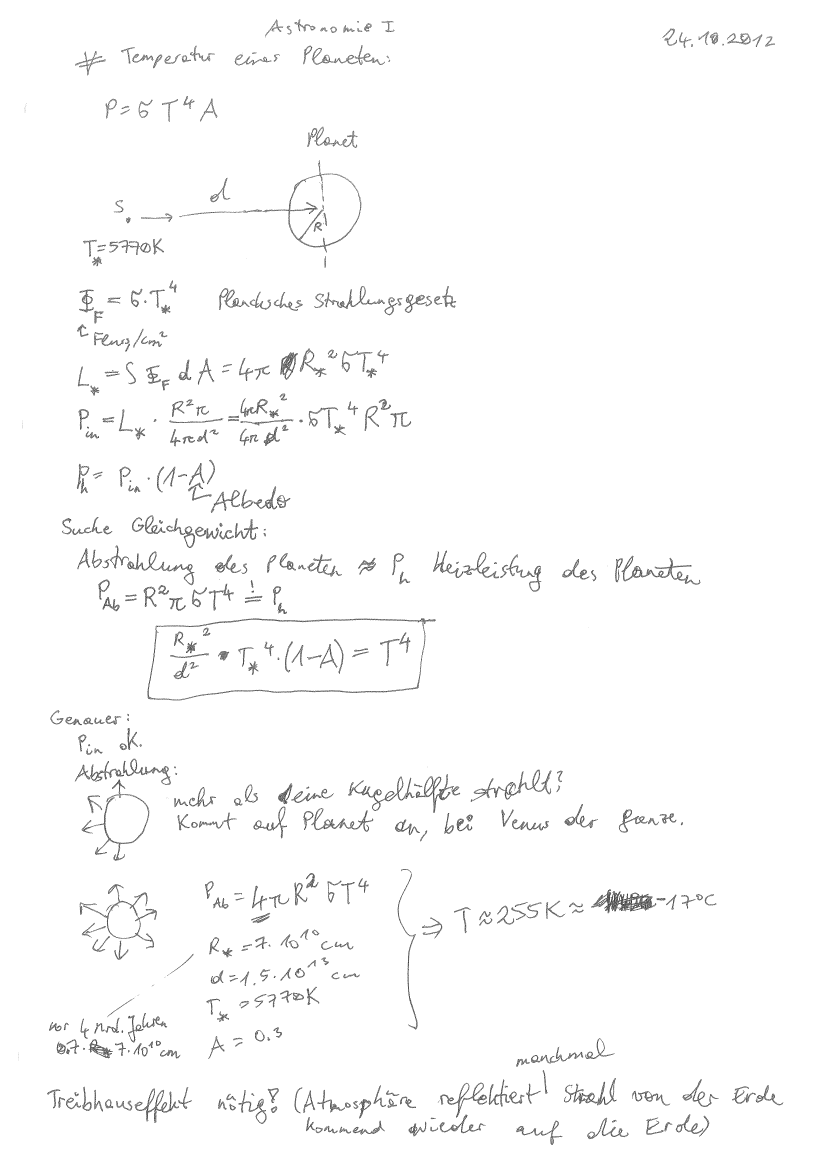 Astronomie I
24.10.2012
# Temperatur eines Planeten:
P = σ T⁴ A
Planet
S. d
R
T* = 5770K
Φ_F = σ·T*⁴ Plancksches Strahlungsgesetz
↑ Fluss/cm²
L* = ∫ Φ_F dA = 4π R*² σT*⁴
P_in = L* · R²π/4πd² = 4πR*²/4πd² · σT*⁴ R²π
P_h = P_in · (1-A)
↑ Albedo
Suche Gleichgewicht:
Abstrahlung des Planeten ≈ P_h Heizleistung des Planeten
P_Ab = R²π σT⁴ =! P_h
R*²/d² · T*⁴ · (1-A) = T⁴
Genauer:
P_in ok.
Abstrahlung:
mehr als eine Kugelhälfte strahlt?
Kommt auf Planet an, bei Venus der ganze.
P_Ab = 4πR² σT⁴
⇒ T ≈ 255K ≈ -17°C
R* = 7·10¹⁰ cm
d = 1.5·10¹³ cm
T* = 5770K
A = 0.3
vor 4 Mrd. Jahren
0.7· 7·10¹⁰ cm
manchmal
Treibhauseffekt nötig! (Atmosphäre reflektiert Strahl von der Erde
kommend wieder auf die Erde)